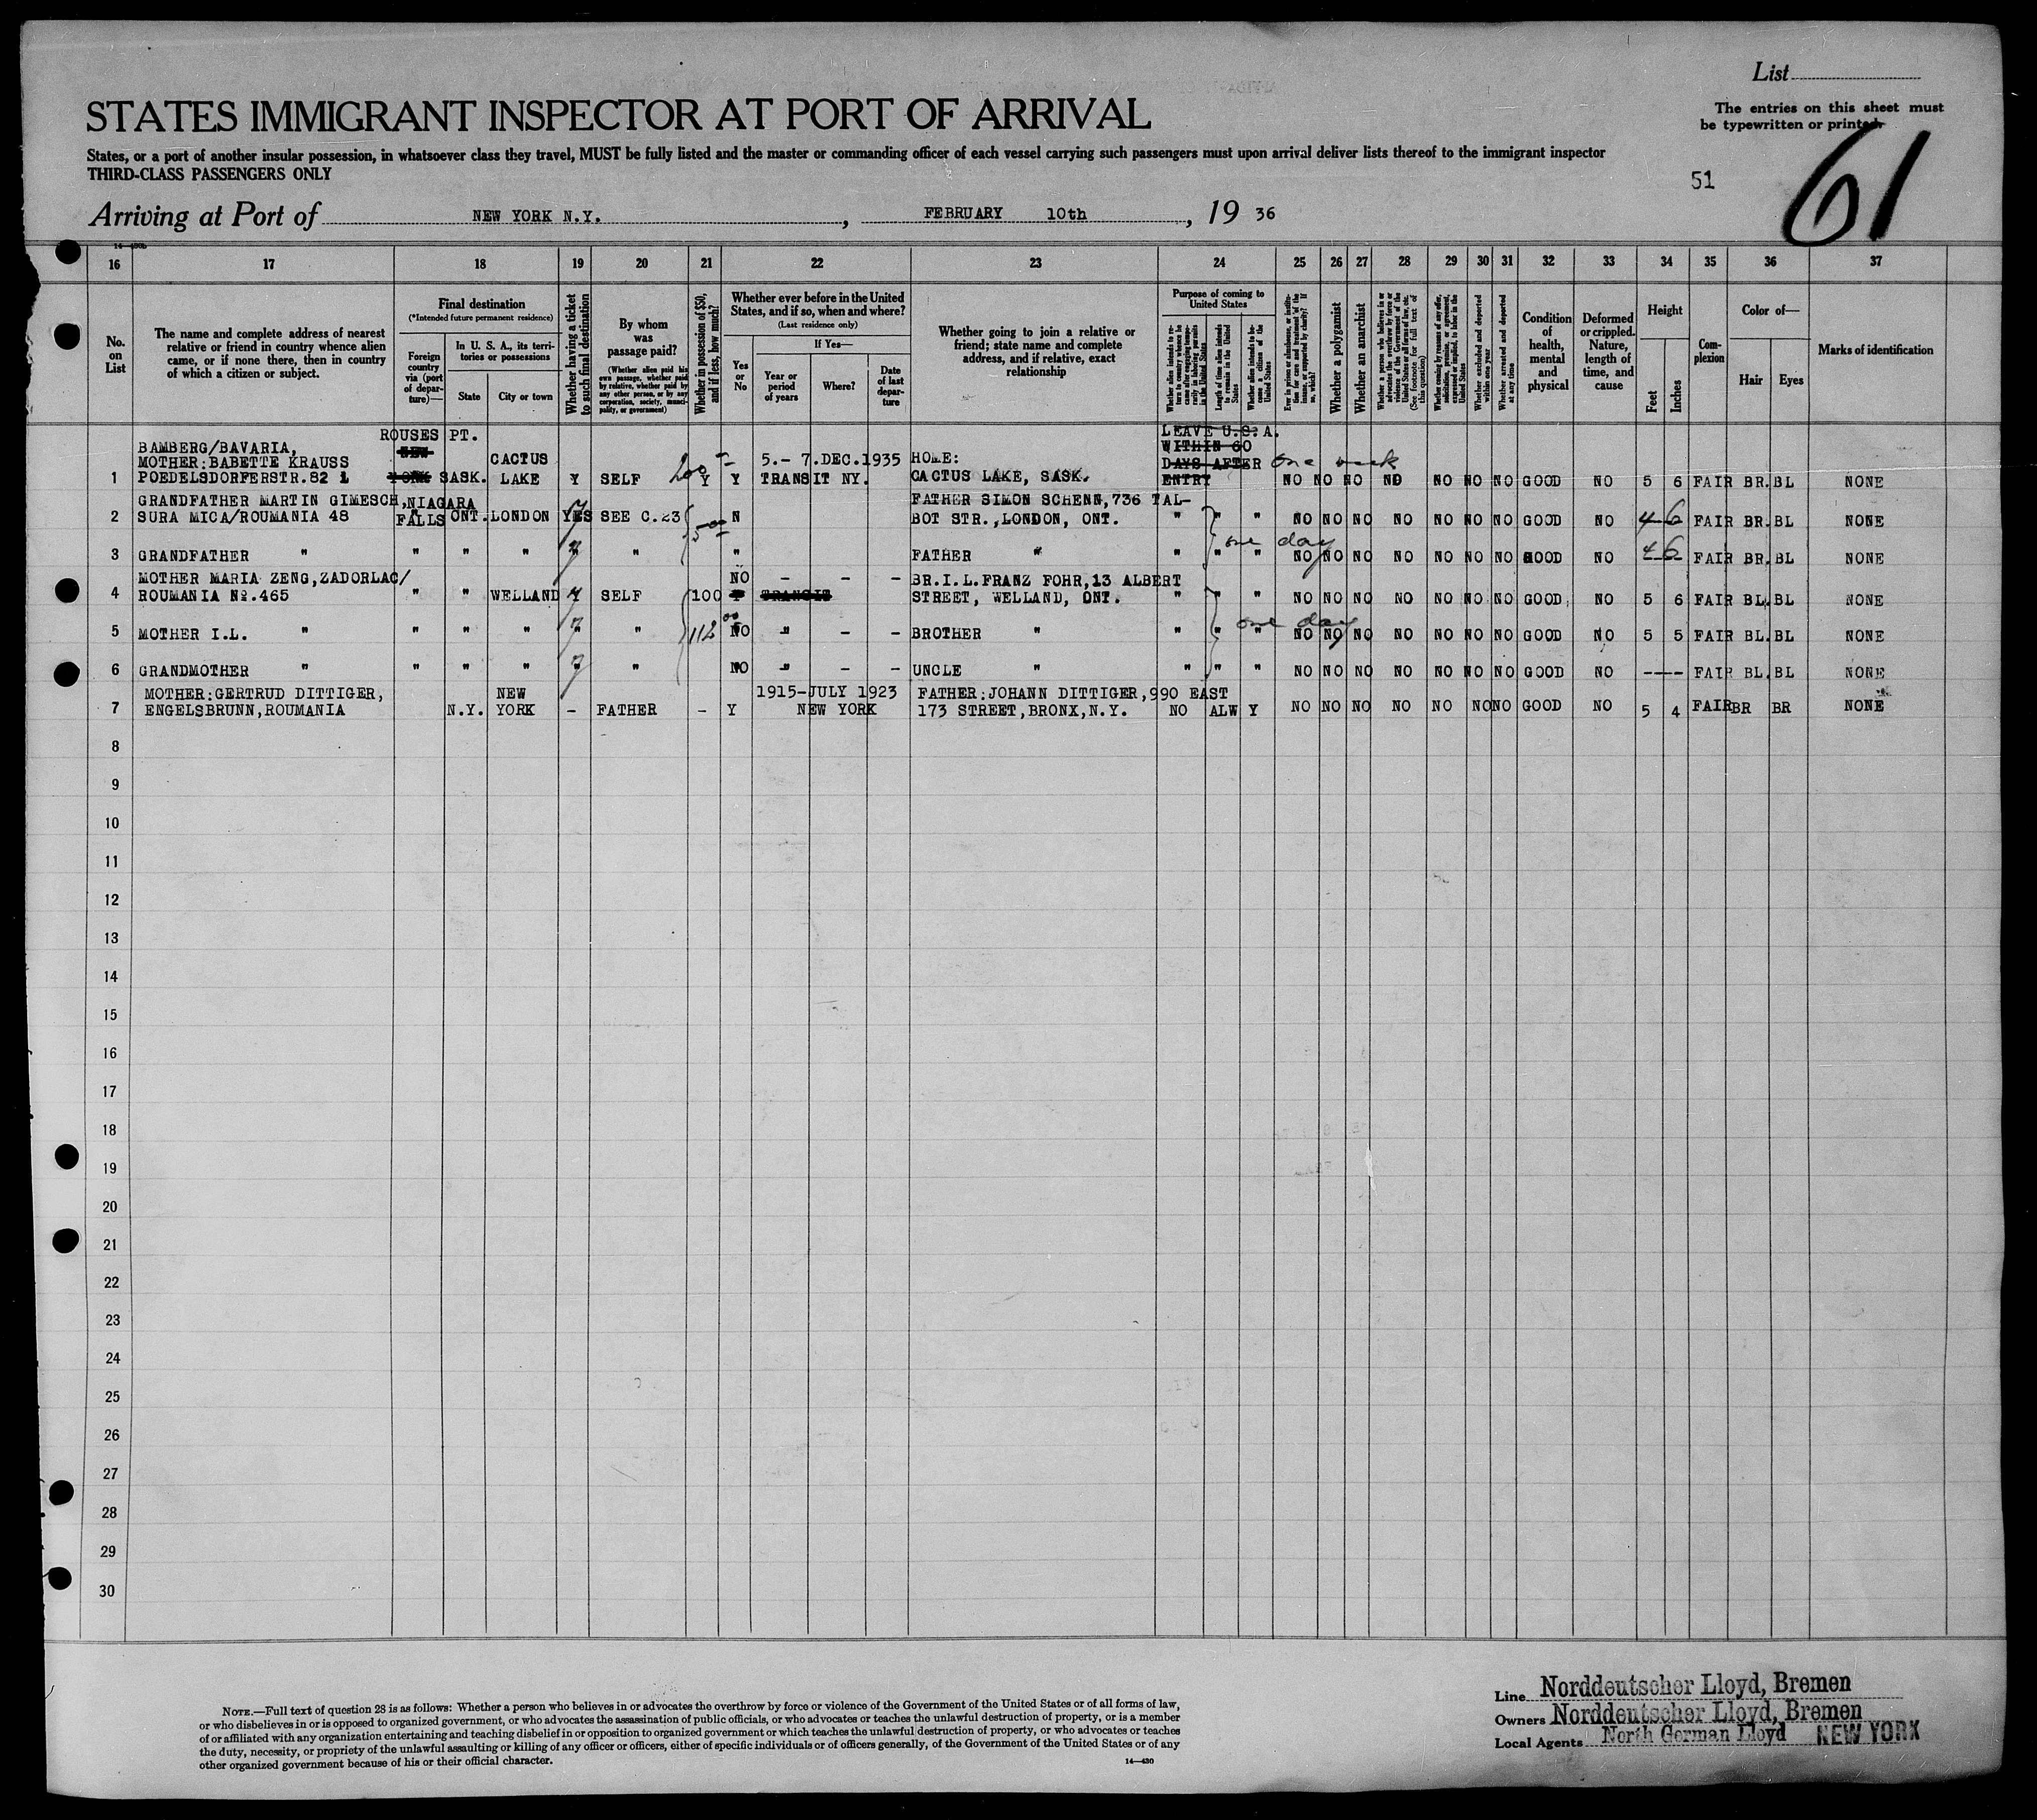 List
STATES IMMIGRANT INSPECTOR AT PORT OF ARRIVAL
The entries on this sheet must
be typewritten or printed.
States, or a port of another insular possession, in whatsoever class they travel, MUST be fully listed and the master or commanding officer of each vessel carrying such passengers must upon arrival deliver lists thereof to the immigrant inspector
THIRD-CLASS PASSENGERS ONLY
51
61
Arriving at Port of NEW YORK N.Y. , FEBRUARY 10th , 19 36
16 17 18 19 20 21 22 23 24 25 26 27 28 29 30 31 32 33 34 35 36 37
No. on List
The name and complete address of nearest relative or friend in country whence alien came, or if none there, then in country of which a citizen or subject.
Final destination
(*Intended future permanent residence)
Foreign country via (port of departure)—
In U. S. A., its territories or possessions
State
City or town
Whether having a ticket to such final destination
By whom was passage paid?
(Whether alien paid his own passage, whether paid by relative, whether paid by any other person, or by any corporation, society, municipality, or government)
Whether in possession of $50, and if less, how much?
Whether ever before in the United States, and if so, when and where?
(Last residence only)
Yes or No
If Yes—
Year or period of years
Where?
Date of last departure
Whether going to join a relative or friend; state name and complete address, and if relative, exact relationship
Purpose of coming to United States
Length of time alien intends to remain in the United States
Whether alien intends to become a citizen of the United States
Whether a polygamist
Whether an anarchist
Whether excluded and deported within one year
Whether arrested and deported at any time
Condition of health, mental and physical
Deformed or crippled. Nature, length of time, and cause
Height
Feet
Inches
Complexion
Color of—
Hair
Eyes
Marks of identification
ROUSES PT. LEAVE U.S.A.
BAMBERG/BAVARIA, NEW WITHIN 60
MOTHER:BABETTE KRAUSS CACTUS 5.- 7.DEC.1935 HOME: DAYS AFTER one week
1 POEDELSDORFERSTR.82 1 YORK SASK. LAKE Y SELF 200 Y Y TRANSIT NY. CACTUS LAKE, SASK. ENTRY NO NO NO NO NO NO NO GOOD NO 5 6 FAIR BR. BL NONE
GRANDFATHER MARTIN GIMESCH, NIAGARA FATHER SIMON SCHENN,736 TAL-
2 SURA MICA/ROUMANIA 48 FALLS ONT. LONDON YES SEE C.23 5 N BOT STR.,LONDON, ONT. " " " NO NO NO NO NO NO NO GOOD NO 4 6 FAIR BR. BL NONE
one day
3 GRANDFATHER " " " " " " " FATHER " " " " NO NO NO NO NO NO NO GOOD NO 4 6 FAIR BR. BL NONE
MOTHER MARIA ZENG,ZADORLAC/ NO - - - BR.I.L.FRANZ FOHR,13 ALBERT
4 ROUMANIA No.465 " " WELLAND SELF 100 TRANSIT STREET, WELLAND, ONT. " " " NO NO NO NO NO NO NO GOOD NO 5 6 FAIR BL. BL NONE
one day
5 MOTHER I.L. " " " " " " 112 NO - - - BROTHER " " " " NO NO NO NO NO NO NO GOOD NO 5 5 FAIR BL. BL NONE
6 GRANDMOTHER " " " " " " NO - - - UNCLE " " " " NO NO NO NO NO NO NO GOOD NO --- FAIR BL. BL NONE
MOTHER:GERTRUD DITTIGER, NEW 1915-JULY 1923 FATHER:JOHANN DITTIGER,990 EAST
7 ENGELSBRUNN,ROUMANIA N.Y. YORK - FATHER - Y NEW YORK 173 STREET,BRONX,N.Y. NO ALW Y NO NO NO NO NO NO NO GOOD NO 5 4 FAIR BR BR NONE
8
9
10
11
12
13
14
15
16
17
18
19
20
21
22
23
24
25
26
27
28
29
30
NOTE.—Full text of question 28 is as follows: Whether a person who believes in or advocates the overthrow by force or violence of the Government of the United States or of all forms of law,
or who disbelieves in or is opposed to organized government, or who advocates the assassination of public officials, or who advocates or teaches the unlawful destruction of property, or is a member
of or affiliated with any organization entertaining and teaching disbelief in or opposition to organized government or which teaches the unlawful destruction of property, or who advocates or teaches
the duty, necessity, or propriety of the unlawful assaulting or killing of any officer or officers, either of specific individuals or of officers generally, of the Government of the United States or of any
other organized government because of his or their official character.
14—430
Line Norddeutscher Lloyd, Bremen
Owners Norddeutscher Lloyd, Bremen
Local Agents North German Lloyd NEW YORK